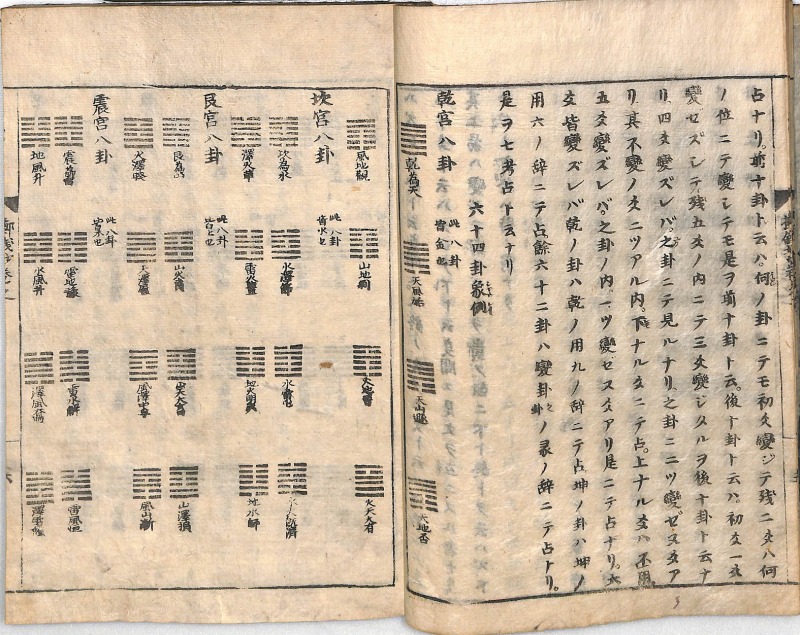 占ナリ。前十卦ト云ハ。何ノ卦ニテモ初爻變ジテ残ニ爻ハ何
ノ位ニテ變シテモ是ヲ前十卦ト云。後十卦ト云ハ。初爻一爻
變セズシテ。残五爻ノ内ニテ三爻變ジタルヲ後十卦ト云ナ
リ。四爻變ズレバ。之卦ニテ見ルナリ。之卦ニ二ツ變ゼヌ爻ア
リ。其不變ノ爻ニツアル内。下ナル爻ニテ占。上ナル爻ハ不用
五爻變ズレバ。之卦ノ内一ツ變セヌ爻アリ是ニテ占ナリ。六
爻皆變ズレバ乾ノ卦ハ乾ノ用九ノ辞ニテ占坤ノ卦ハ坤ノ
用六ノ辞ニテ占。餘六十二卦ハ變卦ノ彖ノ辞ニテ占トリ。
是ヲ七考占ト云ナリ
六十四卦象例
乾宮八卦 此八卦皆金也
乾為天
天風姤
天山遯
天地否
風地觀
山地剝
火地晉
火天大有
坎宮八卦 此八卦皆水也
坎為水
水澤節
水雷屯
水火既濟
澤火革
雷火豐
地火明夷
地水師
艮宮八卦 此八卦皆土也
艮為山
山火賁
山天大畜
山澤損
火澤睽
天澤履
風澤中孚
風山漸
震宮八卦 此八卦皆木也
震為雷
雷地豫
雷水解
雷風恒
地風升
水風井
澤風大過
澤雷隨